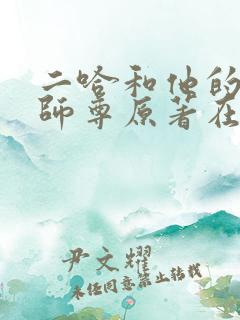 二哈和他的
師尊原著在
尹文耀
未经同意禁止转载